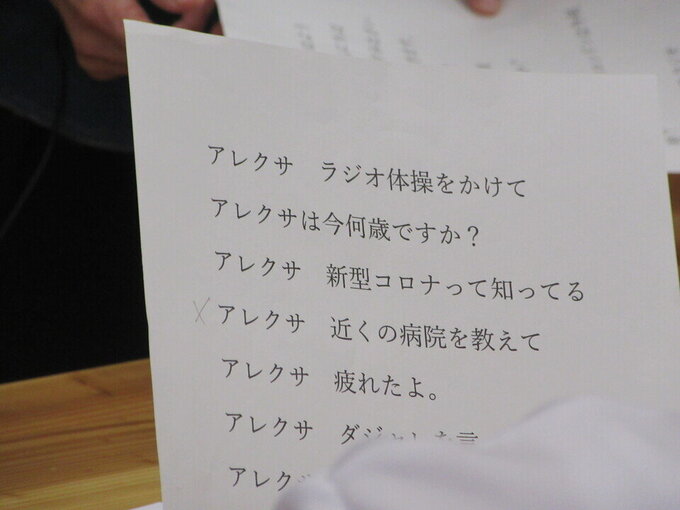 アレクサ ラジオ体操をかけて
アレクサは今何歳ですか？
アレクサ 新型コロナって知ってる
× アレクサ 近くの病院を教えて
アレクサ 疲れたよ。
アレクサ
アレク